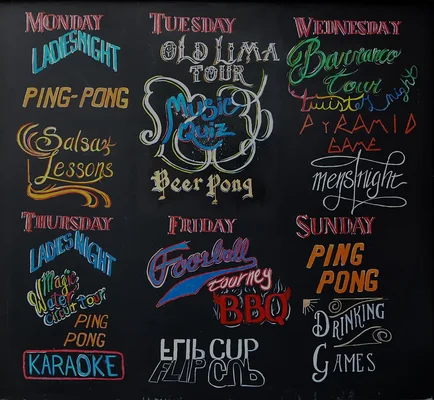 MONDAY
LADIES NIGHT
PING-PONG
Salsa
Lessons
TUESDAY
OLD LIMA
TOUR
Music
Quiz
Beer Pong
WEDNESDAY
Barranco
Tour
twister night
PYRAMID
GAME
men's night
THURSDAY
LADIES NIGHT
Magic
Water
Circuit Tour
PING
PONG
KARAOKE
FRIDAY
Foosball
tourney
BBQ
FLIP CUP
FLIP CUP
SUNDAY
PING
PONG
DRINKING
GAMES